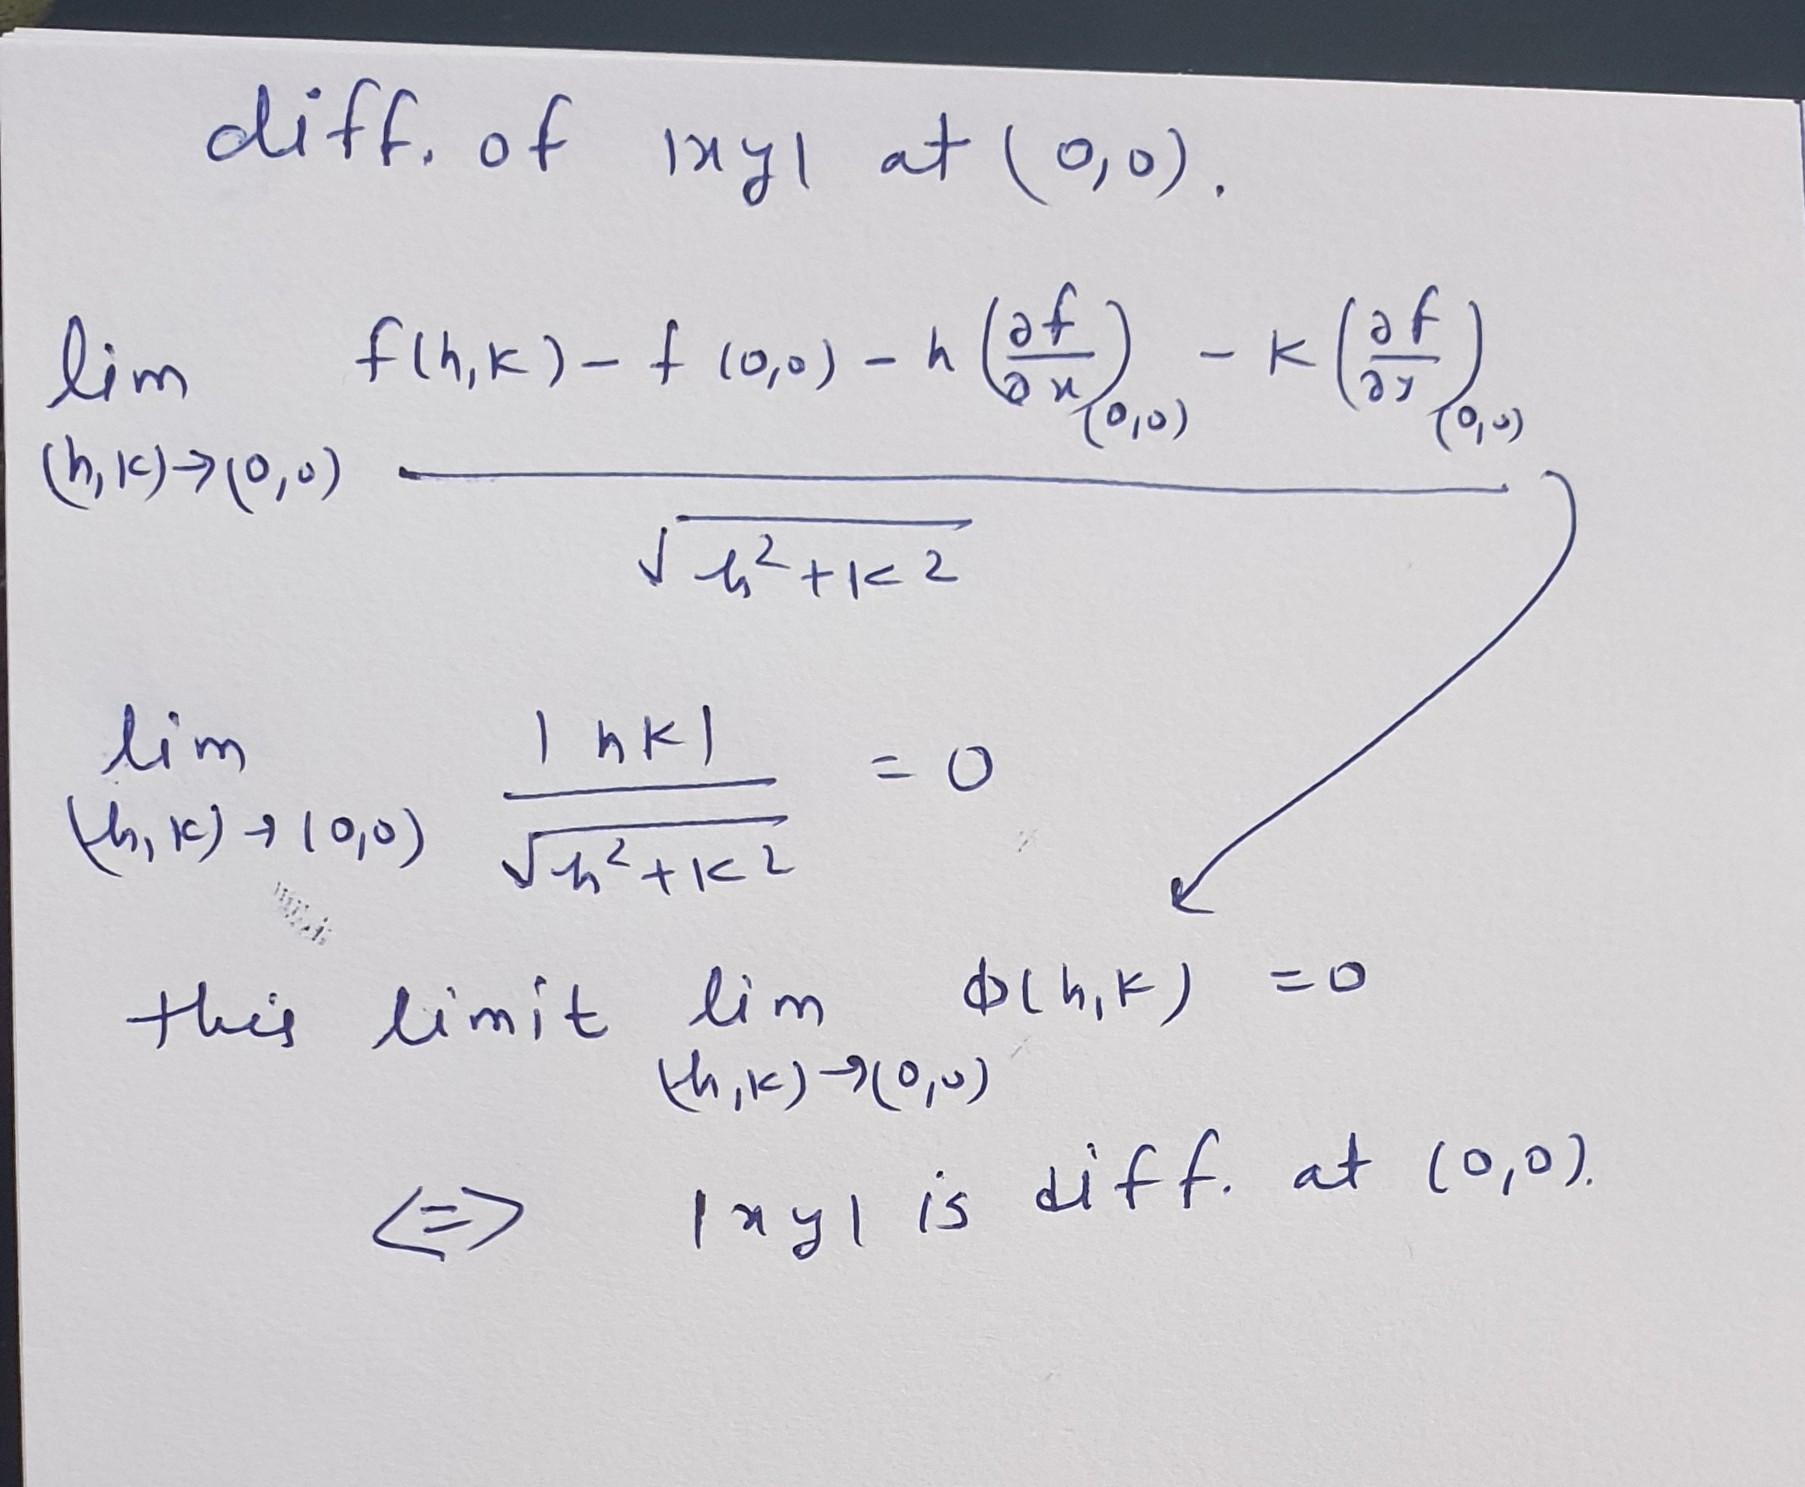 diff. of |xy| at (0,0).
lim f(h,k) - f(0,0) - h (∂f/∂x)(0,0) - k (∂f/∂y)(0,0)
(h,k)→(0,0)
√h²+k²
lim |hk| = 0
(h,k)→(0,0) √h²+k²
this limit lim ϕ(h,k) = 0
(h,k)→(0,0)
<=> |xy| is diff. at (0,0).